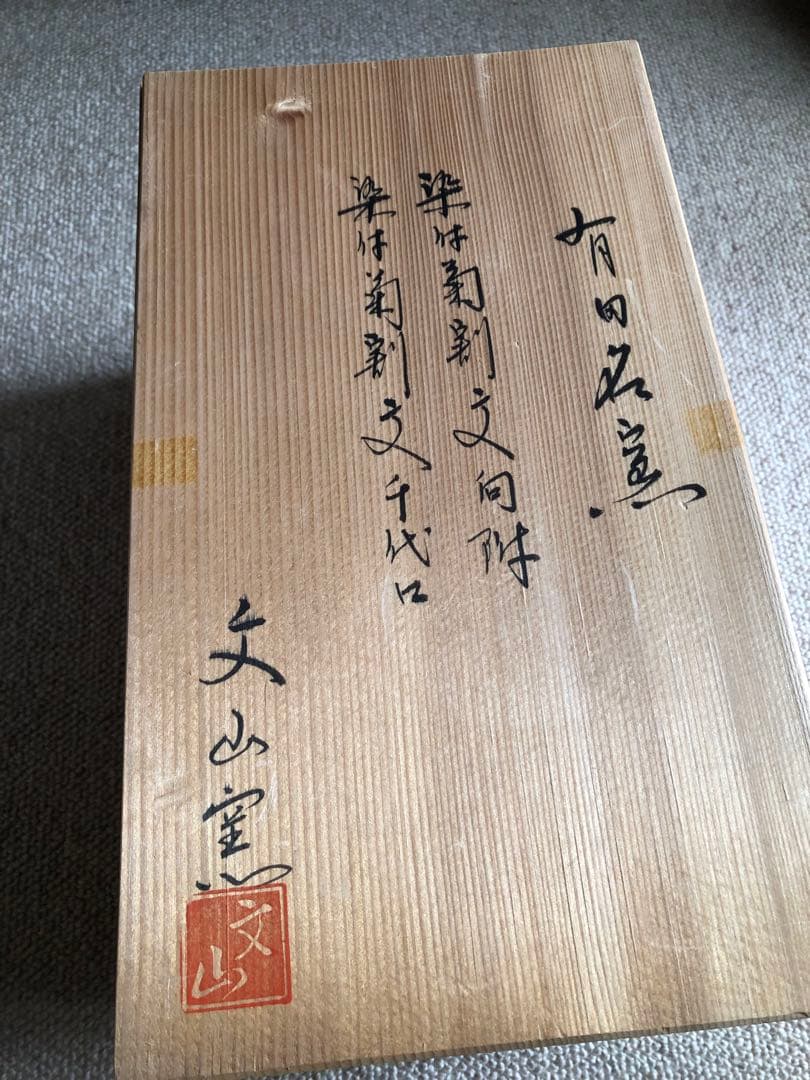 有田名窯
染付菊割文向附
染付菊割文千代口
文山窯
文山